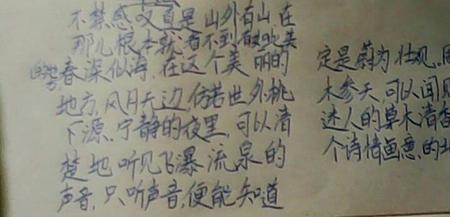 不禁感叹真是山外有山,在
那儿根本就看不到
春深似海,在这个美丽的
地方,风月无边,仿若世外桃
下源,宁静的夜里,可以清
楚地听见飞瀑流泉的
声音,只听声音,便能知道
定是蔚为壮观,
木参天,可以闻见
迷人的草木清香
个诗情画意的